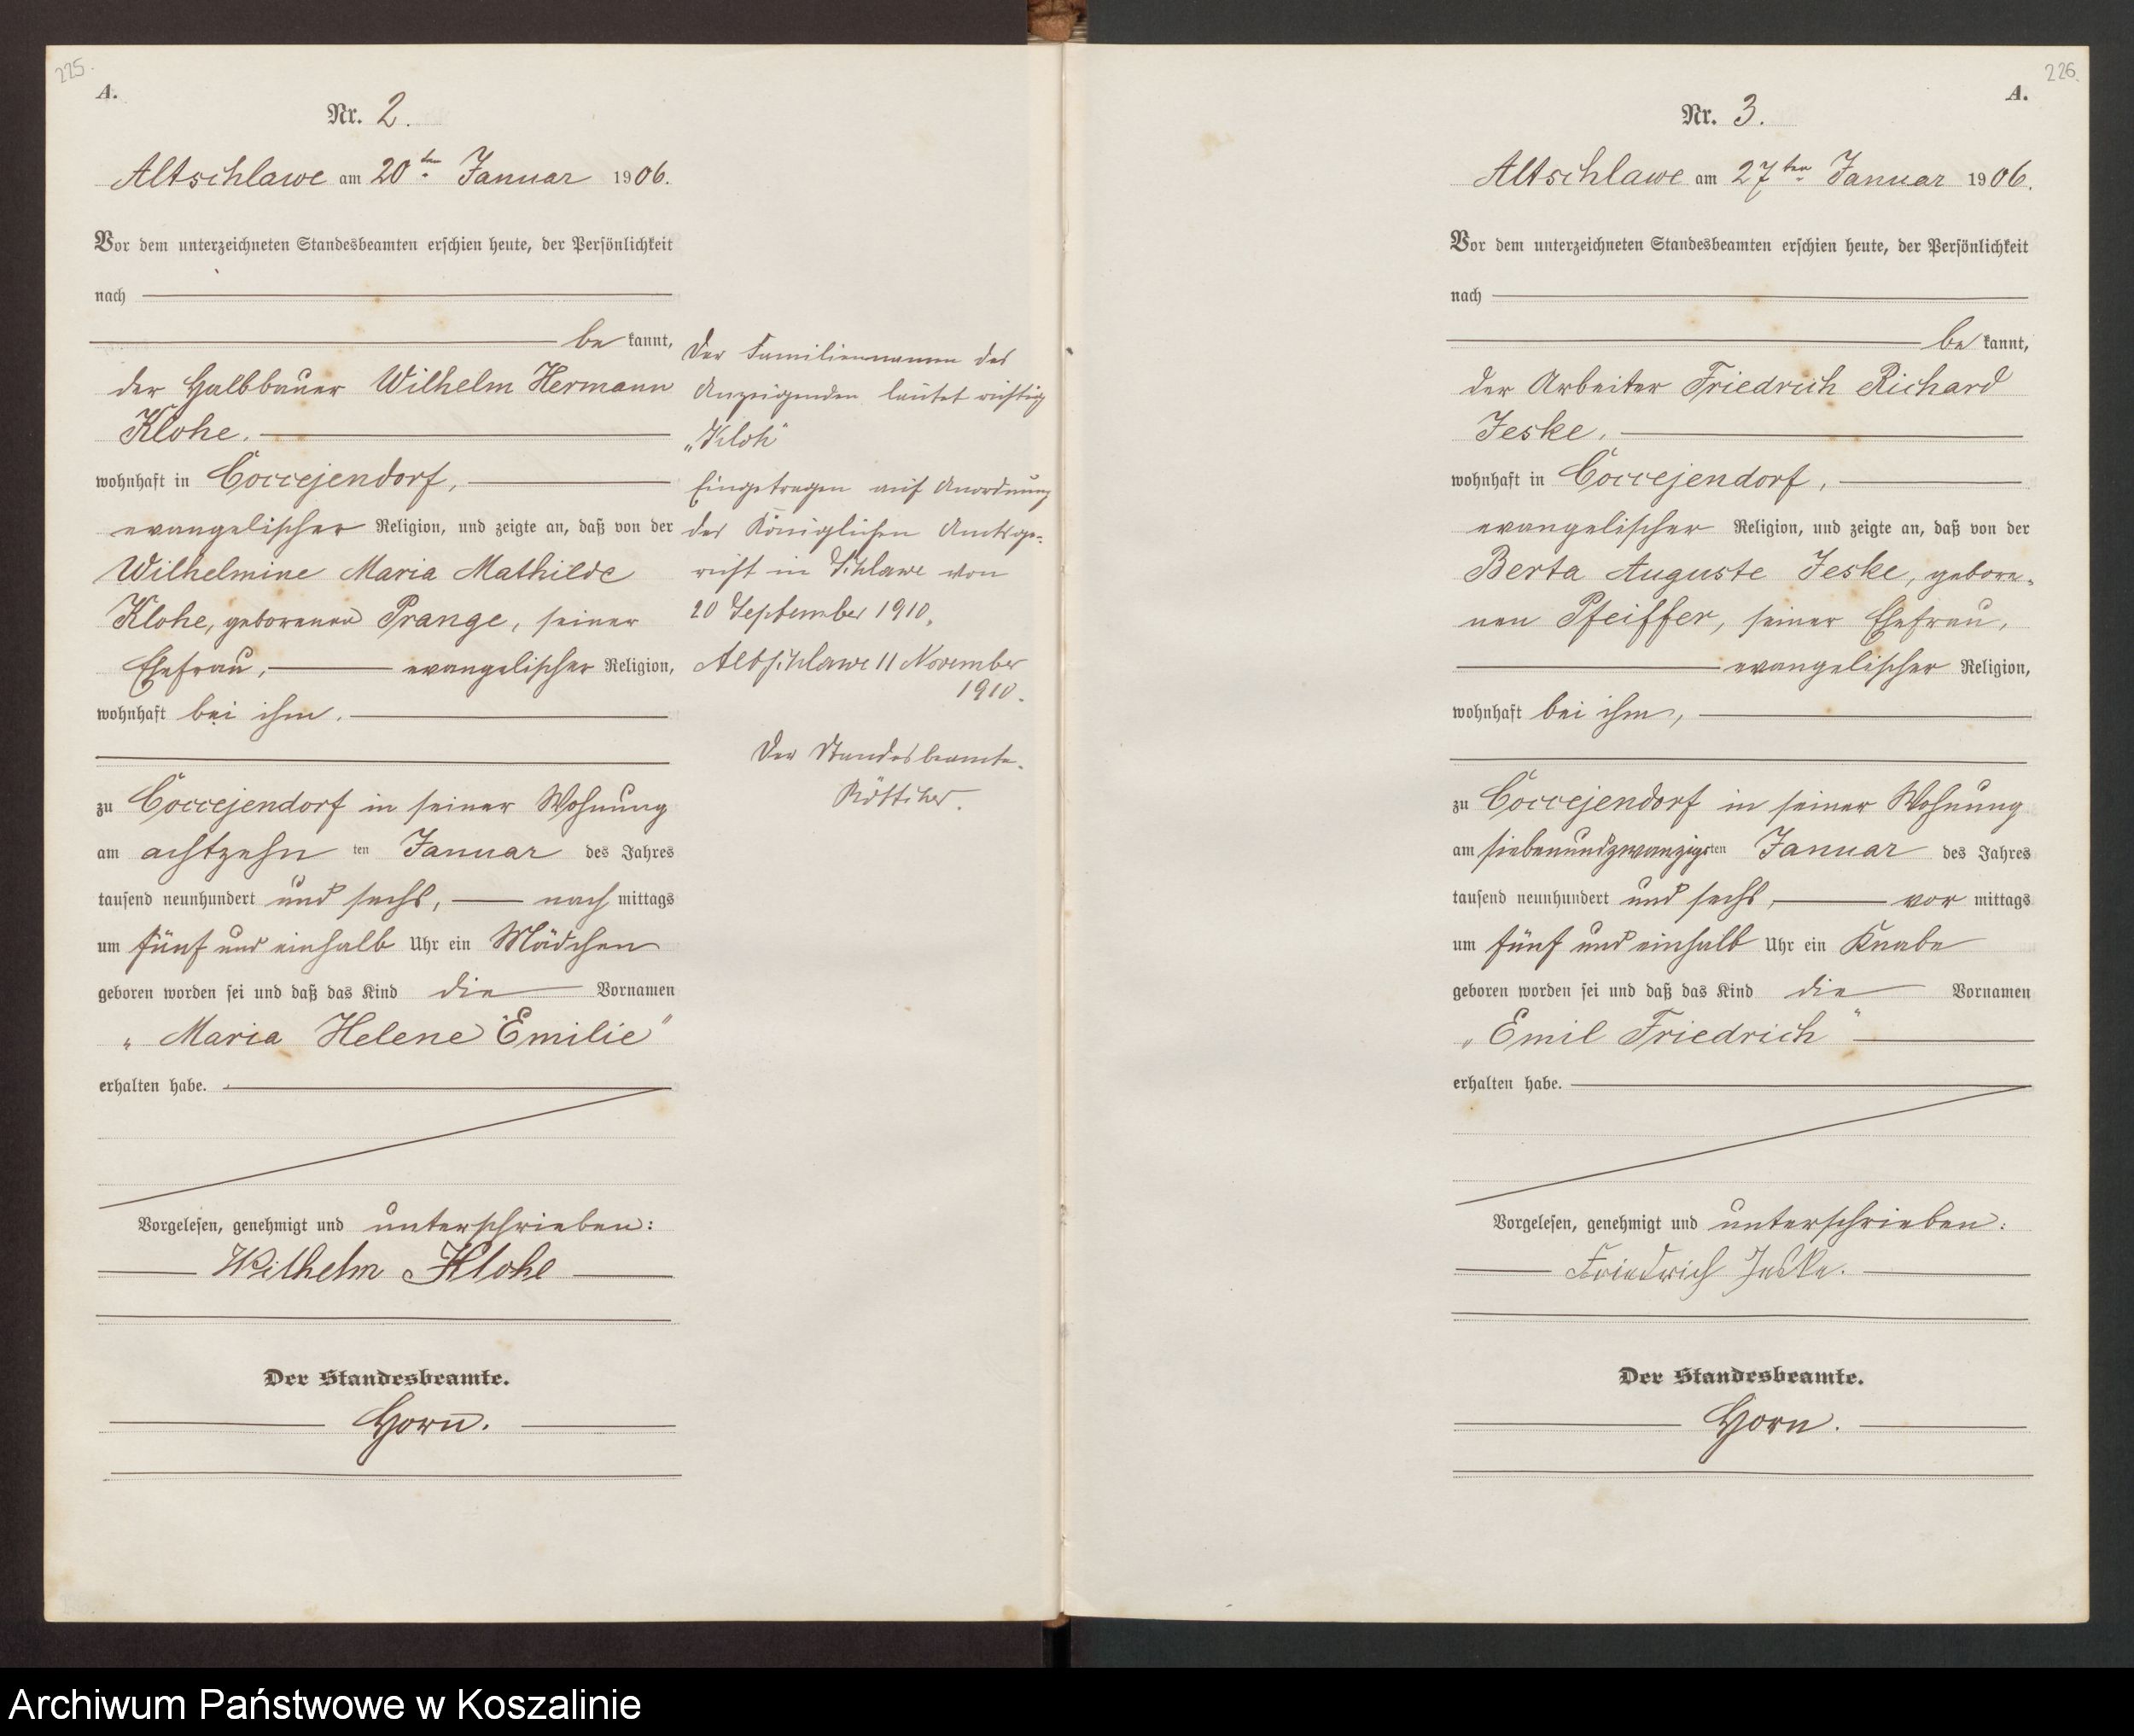 225.
A.
Nr. 2.
Altschlawe am 20ten Januar 1906.
Vor dem unterzeichneten Standesbeamten erschien heute, der Persönlichkeit
nach
be kannt,
der Halbbauer Wilhelm Hermann
Klohe.
wohnhaft in Coccejendorf,
evangelischer Religion, und zeigte an, daß von der
Wilhelmine Maria Mathilde
Klohe, geborenen Prange, seiner
Ehefrau, evangelischer Religion,
wohnhaft bei ihm.
zu Coccejendorf in seiner Wohnung
am achtzehn ten Januar des Jahres
tausend neunhundert und sechs, nach mittags
um fünf und einhalb Uhr ein Mädchen
geboren worden sei und daß das Kind die Vornamen
„Maria Helene Emilie"
erhalten habe.
Vorgelesen, genehmigt und unterschrieben:
Wilhelm Klohe
Der Standesbeamte.
Horn.
Der Familiennamen des
Anzeigenden lautet richtig
„Kloh"
Eingetragen auf Anordnung
des Königlichen Amtsge-
richt in Schlawe von
20 September 1910.
Altschlawe 11 November
1910.
Der Standesbeamte.
Böttcher.
226.
A.
Nr. 3.
Altschlawe am 27ten Januar 1906.
Vor dem unterzeichneten Standesbeamten erschien heute, der Persönlichkeit
nach
be kannt,
der Arbeiter Friedrich Richard
Jeske,
wohnhaft in Coccejendorf,
evangelischer Religion, und zeigte an, daß von der
Berta Auguste Jeske, gebore-
nen Pfeiffer, seiner Ehefrau,
evangelischer Religion,
wohnhaft bei ihm,
zu Coccejendorf in seiner Wohnung
am siebenundzwanzigsten Januar des Jahres
tausend neunhundert und sechs, vor mittags
um fünf und einhalb Uhr ein Knabe
geboren worden sei und daß das Kind die Vornamen
„Emil Friedrich"
erhalten habe.
Vorgelesen, genehmigt und unterschrieben:
Friedrich Jeske.
Der Standesbeamte.
Horn.
Archiwum Państwowe w Koszalinie